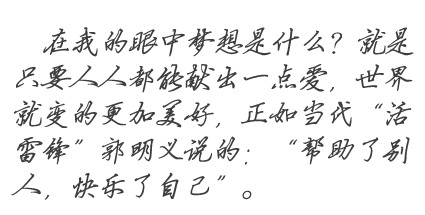 在我的眼中梦想是什么？就是
只要人人都能献出一点爱，世界
就变的更加美好，正如当代“活
雷锋”郭明义说的：“帮助了别
人，快乐了自己”。